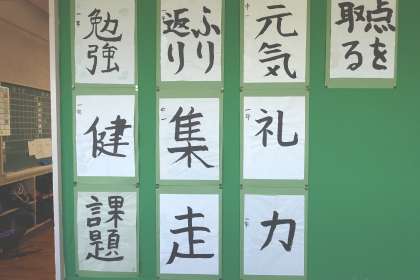 勉強
ふり
返り
元気
点を
取る
健
集
礼
課題
走
力